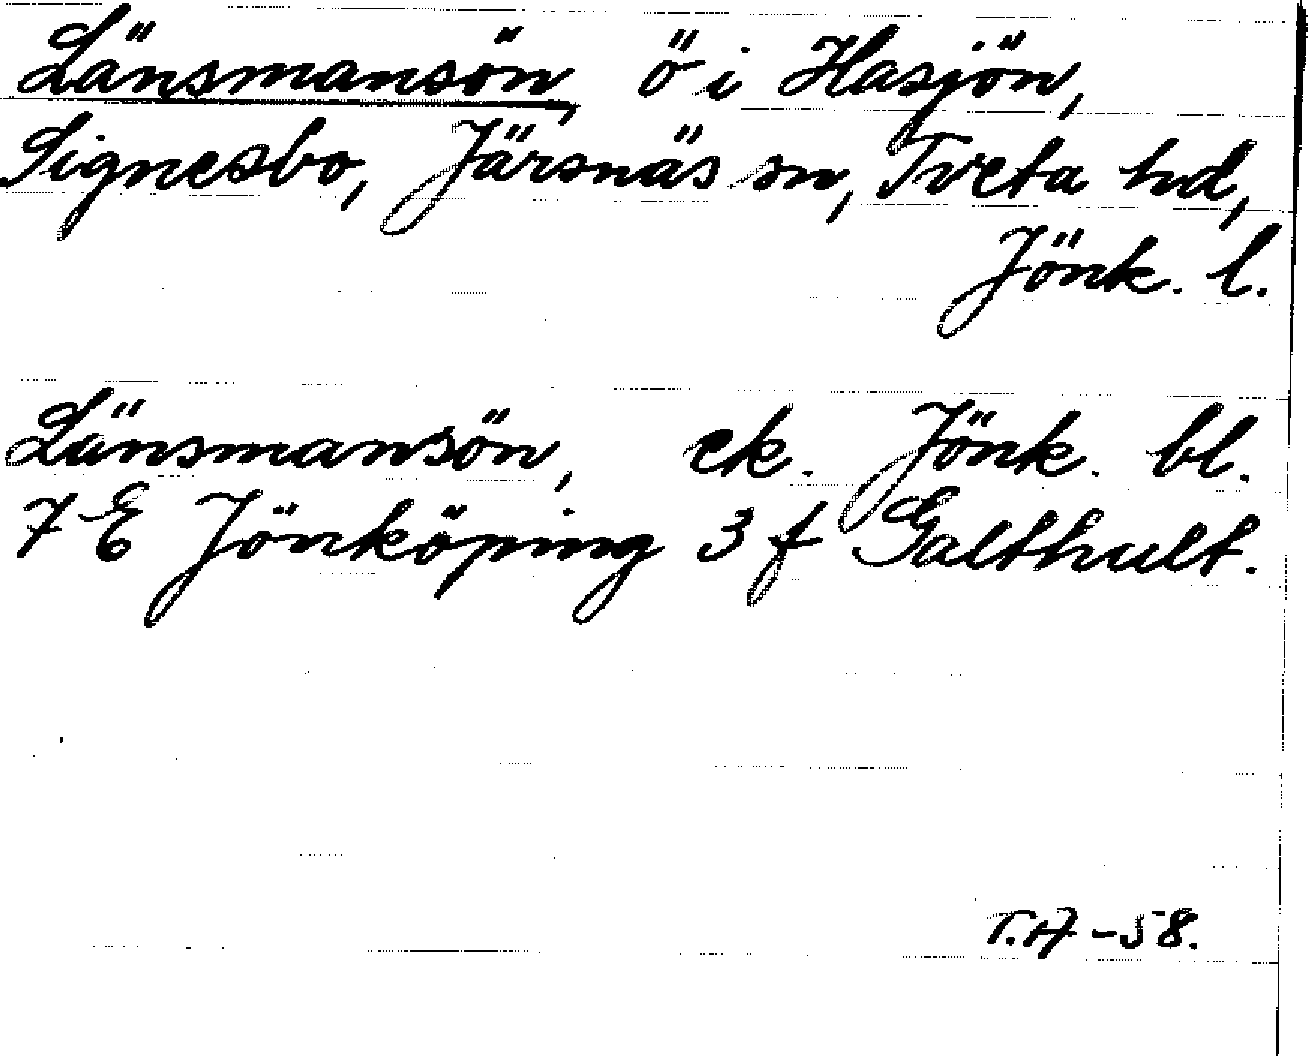 Länsmansön, ö i Hasjön,
Signesbo, Järsnäs sn, Tveta hd,
Jönk. l.
Länsmansön, ek. Jönk. bl.
7 E Jönköping 3 f Galthult.
T.A -58.